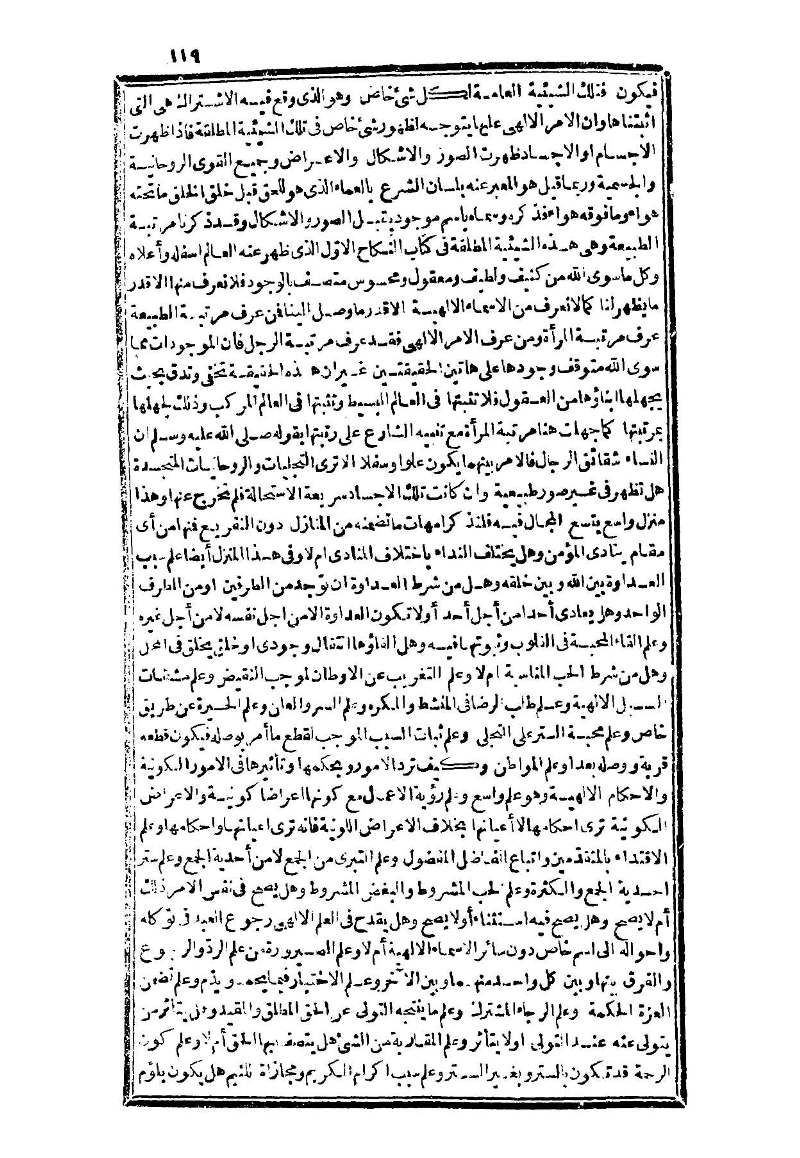 ١١٩
فيكون فتلك الشيئية العامة لكل شئ خاص وهو الذى وقع فيه الاشتراك هى التى
اثبتناها وان الامر الالهى عليها يتوجه لظهور شئ خاص فى تلك الشيئية المطلقة فاذا ظهرت
الاجسام او الاجساد ظهرت الصور والاشكال والاعراض وجميع القوى الروحانية
والجسمية وربما قيل هو المعبر عنه بلسان الشرع بالعماء الذى هو للحق قبل خلق الخلق ما تحته
هواء وما فوقه هواء فذكره وسماه باسم موجود يقبل الصور والاشكال وقد ذكرنا مرتبة
الطبيعة وهى هذه الشيئية المطلقة فى كتاب النكاح الاول الذى ظهر عنه العالم اسفله وأعلاه
وكل ما سوى الله من كثيف ولطيف ومعقول ومحسوس متصف بالوجود فلا نعرف منها الا قدر
ما يظهر لنا كما لا نعرف من الاسماء الالهية الا قدر ما وصل الينا فمن عرف مرتبة الطبيعة
عرف مرتبة المرأة ومن عرف الامر الالهى فقد عرف مرتبة الرجل فان الموجودات مما
سوى الله متوقف وجودها على هاتين الحقيقتين غير ان هذه الحقيقة تخفى وتدق بحيث
يجهلها ابناؤها من العقول فلا تثبتها فى العالم البسيط وتثبتها فى العالم المركب وذلك لجهلها
بمرتبتها كما جهلت هنا مرتبة المرأة مع تنبيه الشارع على رتبتها بقوله صلى الله عليه وسلم ان
النساء شقائق الرجال فالامر بينهما يكون علوا وسفلا الا ترى التجليات والروحانيات المتجسدة
هل تظهر فى غير صور طبيعية وان كانت تلك الاجساد سريعة الاستحالة فلم تخرج عنها وهذا
منزل واسع يتسع المجال فيه فلنذكر امهات ما تضمنه من المنازل دون التفريع فمنها من أى
مقام ينادى المؤمن وهل يختلف النداء باختلاف المنادى ام لا وفى هذا المنزل أيضا علم سبب
العداوة بين الله وبين خلقه وهل من شرط العداوة ان توجد من الطرفين او من الطرف
الواحد وهل يعادى أحد من أجل أحد أو لا تكون العداوة الا من اجل نفسه لا من أجل غيره
وعلم القاء المحبة فى القلوب وثبوتها فيه وهل القاؤها انتقال وجودى او خلق يخلق فى المحل
وهل من شرط الحب المناسبة ام لا وعلم التغريب عن الاوطان لموجب النقيض وعلم مشتبهات
السبل الالهية وعلم طلب الرضا فى المنشط والمكره وعلم السر والعلن وعلم الحيرة عن طريق
خاص وعلم محبة الستر على التجلى وعلم ثبات السبب الموجب لقطع ما أمر بوصله فيكون قطعه
قربة ووصله بعدا وعلم المواطن وكيف ترد الامور بحكمها وتأثيرها فى الامور الكونية
والاحكام الالهية وهو علم واسع وعلم رؤية الاعمال مع كونها اعراضا كونية والاعراض
الكونية ترى احكامها لا أعيانها بخلاف الاعراض اللونية فانه ترى اعيانها واحكامها وعلم
الاقتداء بالمتقدمين واتباع الفاضل المفضول وعلم التبرى من الجمع لا من أحدية الجمع وعلم ستر
احدية الجمع والكثرة وعلم الحب المشروط والبغض المشروط وهل يصح فى نفس الامر ذلك
أم لا يصح وهل يصح فيه استثناء أو لا يصح وهل يقدح فى العلم الالهى رجوع العبد فى توكله
واحواله الى اسم خاص دون سائر الاسماء الالهية أم لا وعلم الصيرورة من علم الرد والرجوع
والفرق بينها وبين كل واحد منهما وبين الآخر وعلم الاختيار فيما يحمد ويذم وعلم تضمن
العزة الحكمة وعلم الرجاء المشترك وعلم ما ينتجه التولى عن الحق المطلق والمقيد وهل يتأثر من
يتولى عنه عند التولى اولا يتأثر وعلم المقاربة من الشئ هل يتصف بها الحق أم لا وعلم كون
الرحمة قد تكون بالستر وبغير الستر وعلم سبب اكرام الكريم ومجازاة اللئيم هل يكون بلؤم